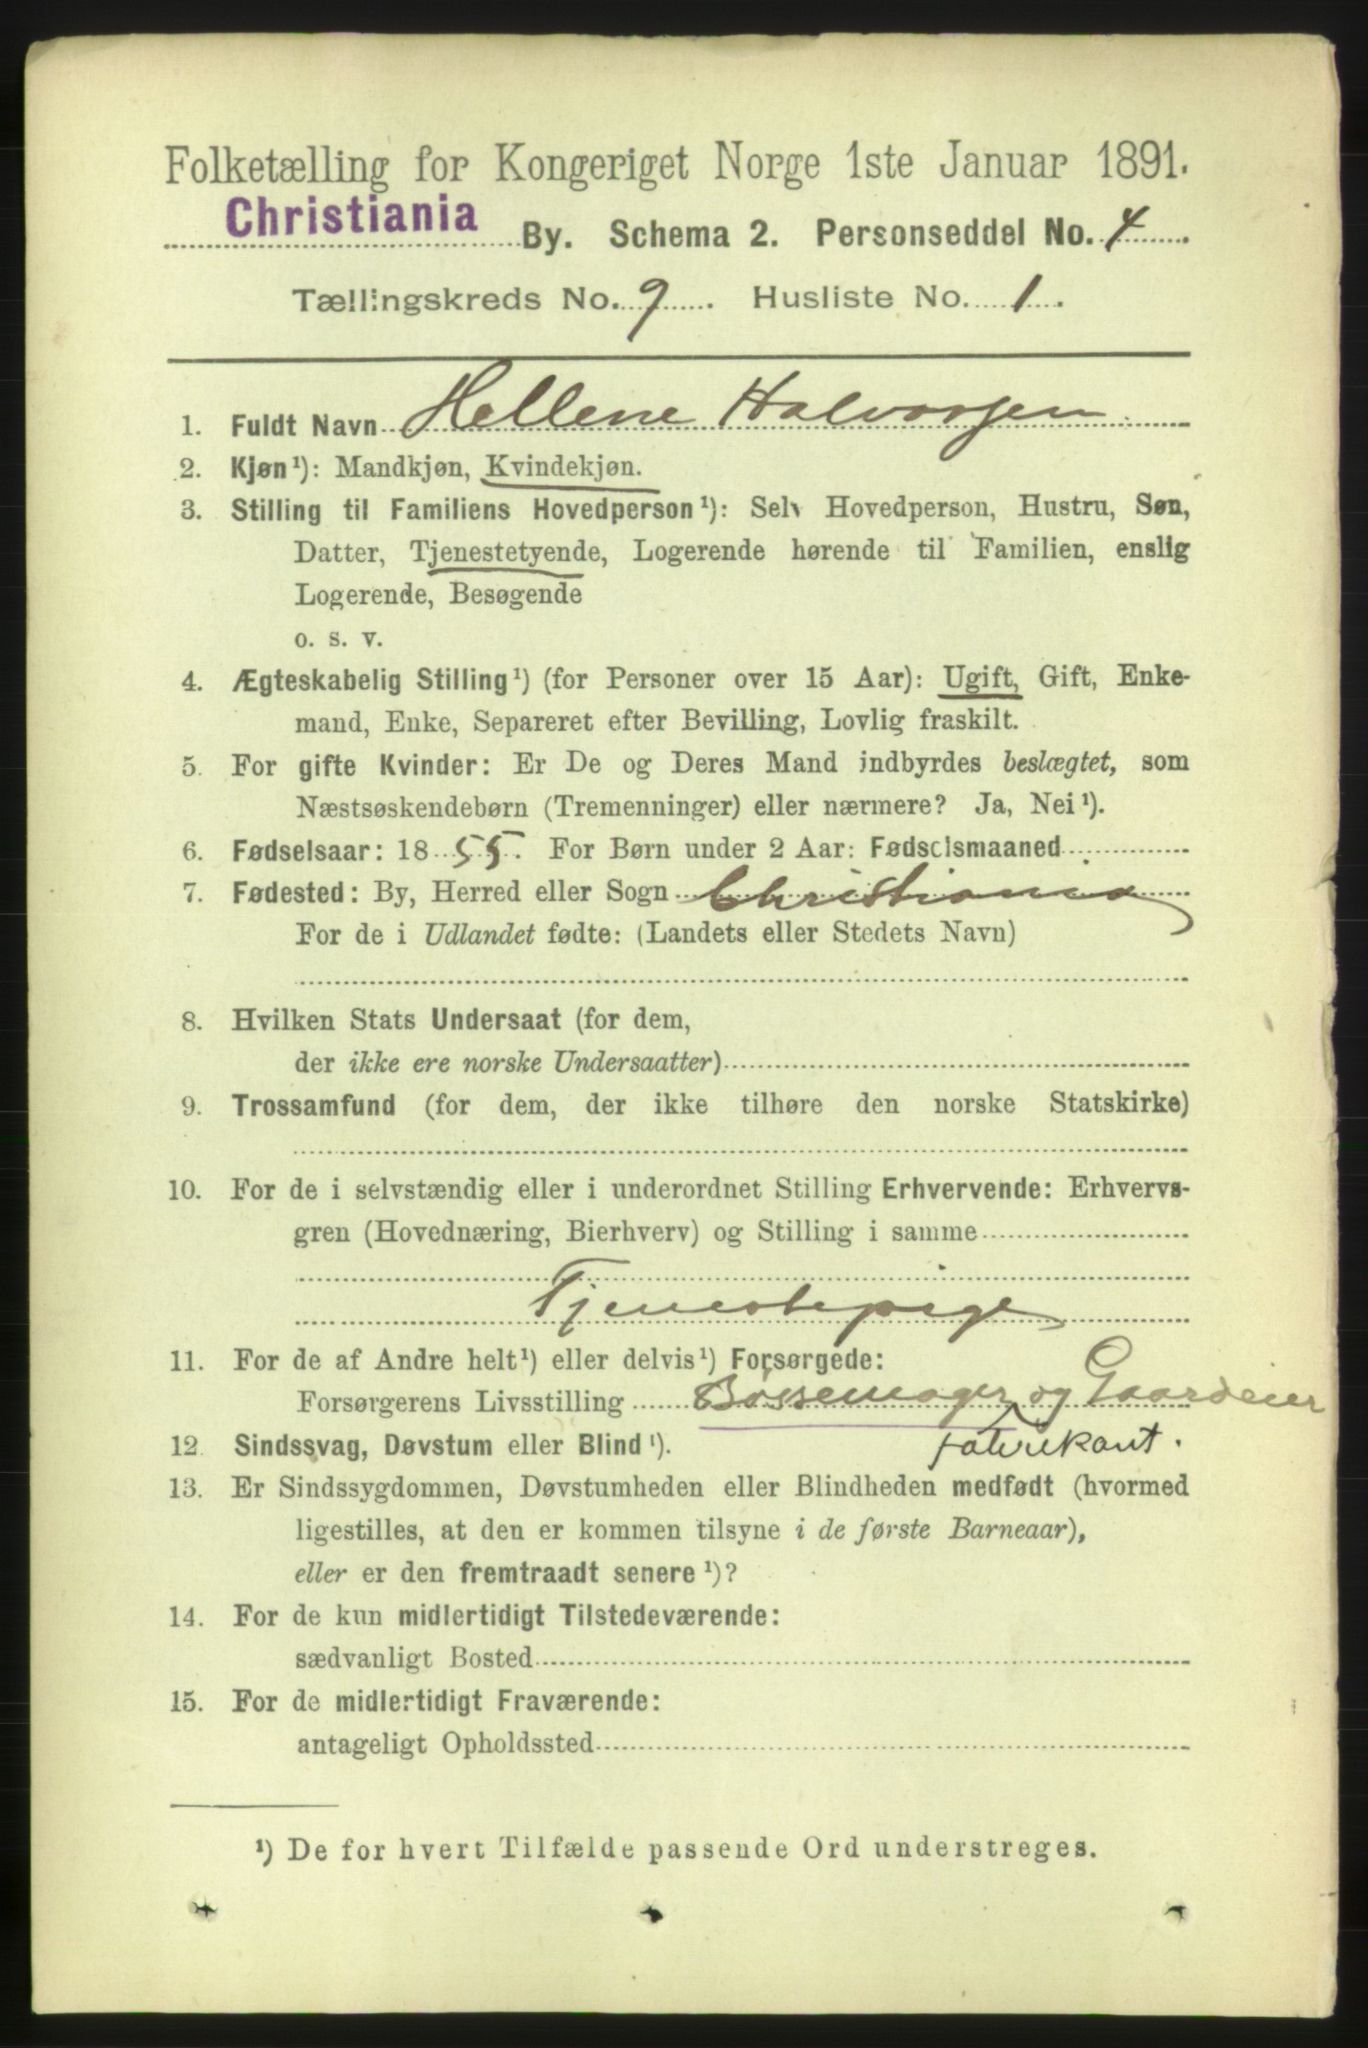 Folketælling for Kongeriget Norge 1ste Januar 1891.
Christiania By. Schema 2. Personseddel No. 4
Tællingskreds No. 9. Husliste No. 1.
1. Fuldt Navn Hellene Halvorsen
2. Kjøn¹): Mandkjøn, Kvindekjøn.
3. Stilling til Familiens Hovedperson¹): Selv Hovedperson, Hustru, Søn,
Datter, Tjenestetyende, Logerende hørende til Familien, enslig
Logerende, Besøgende
o. s. v.
4. Ægteskabelig Stilling¹) (for Personer over 15 Aar): Ugift, Gift, Enke-
mand, Enke, Separeret efter Bevilling, Lovlig fraskilt.
5. For gifte Kvinder: Er De og Deres Mand indbyrdes beslægtet, som
Næstsøskendebørn (Tremenninger) eller nærmere? Ja, Nei¹).
6. Fødselsaar: 1855. For Børn under 2 Aar: Fødselsmaaned
7. Fødested: By, Herred eller Sogn Christiania
For de i Udlandet fødte: (Landets eller Stedets Navn)
8. Hvilken Stats Undersaat (for dem,
der ikke ere norske Undersaatter)
9. Trossamfund (for dem, der ikke tilhøre den norske Statskirke)
10. For de i selvstændig eller i underordnet Stilling Erhvervende: Erhvervs-
gren (Hovednæring, Bierhverv) og Stilling i samme
Tjenestepige
11. For de af Andre helt¹) eller delvis¹) Forsørgede:
Forsørgerens Livsstilling Bøssemager og Gaardeier
fabrikant.
12. Sindssvag, Døvstum eller Blind¹).
13. Er Sindssygdommen, Døvstumheden eller Blindheden medfødt (hvormed
ligestilles, at den er kommen tilsyne i de første Barneaar),
eller er den fremtraadt senere¹)?
14. For de kun midlertidigt Tilstedeværende:
sædvanligt Bosted
15. For de midlertidigt Fraværende:
antageligt Opholdssted
¹) De for hvert Tilfælde passende Ord understreges.